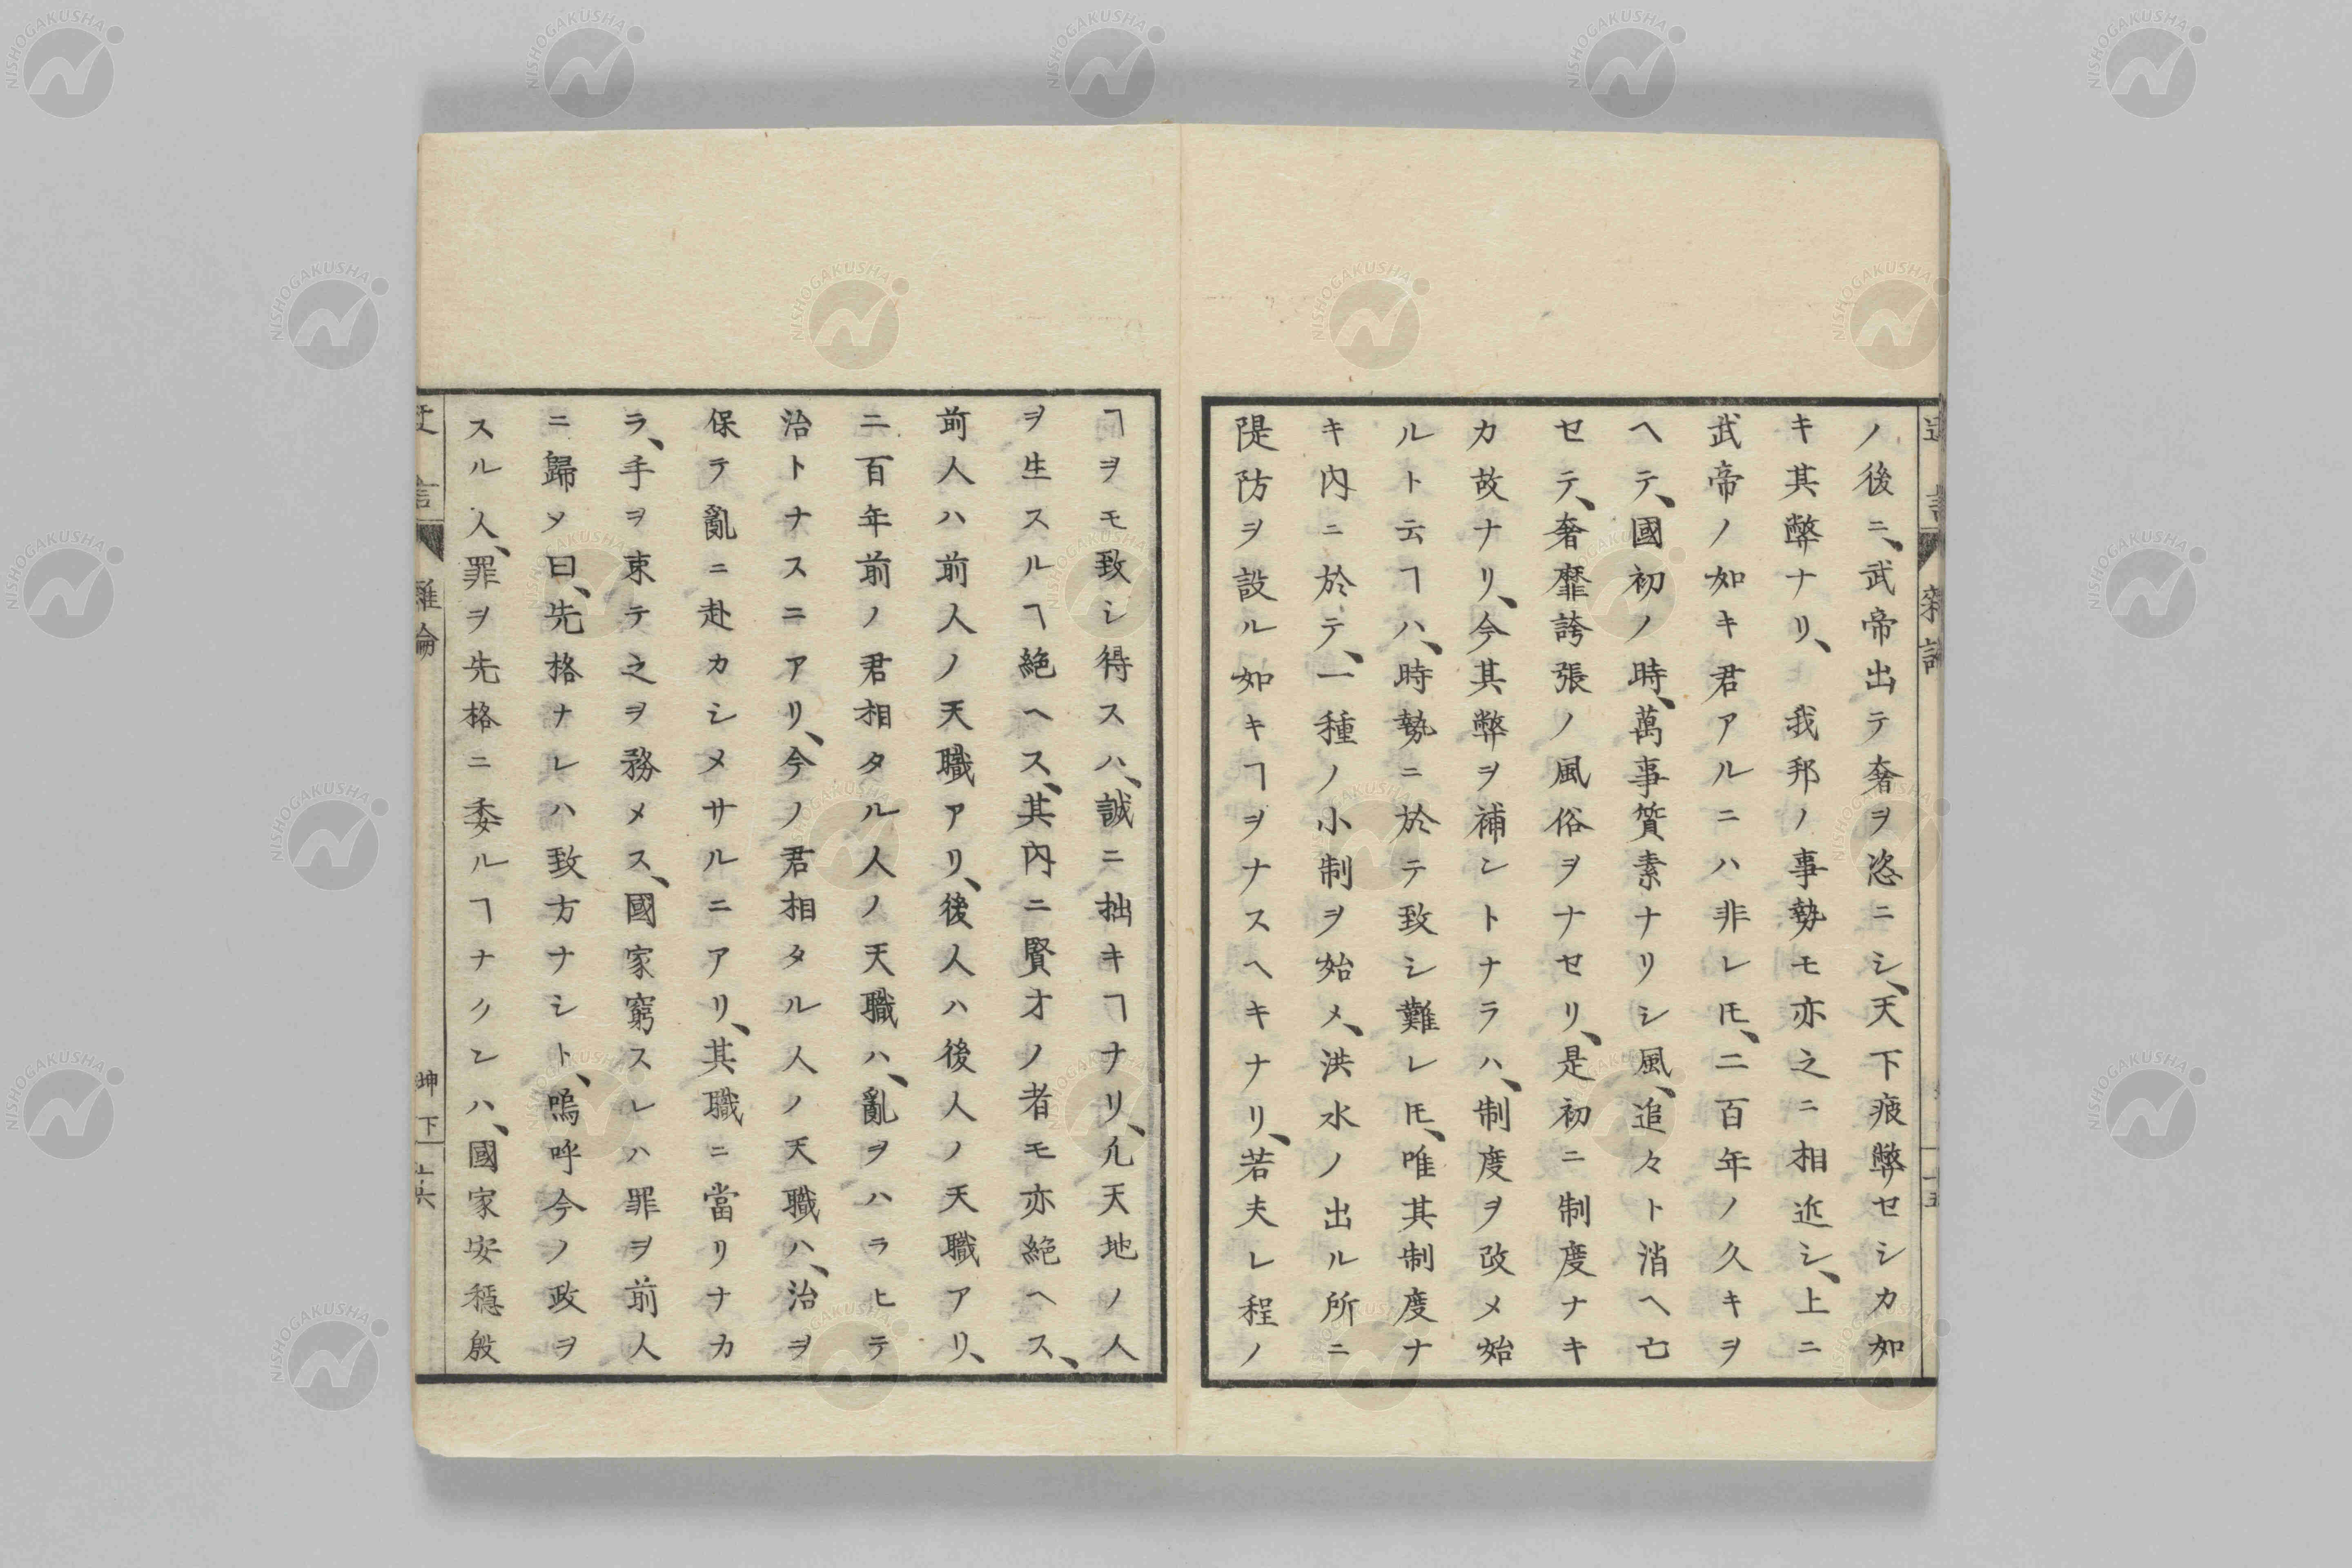 ノ後ニ、武帝出テ奢ヲ恣ニシ、天下疲弊セシカ如
キ其弊ナリ、我邦ノ事勢モ亦之ニ相近シ、上ニ
武帝ノ如キ君アルニハ非レ𪜈、二百年ノ久キヲ
ヘテ、國初ノ時、萬事質素ナリシ風、追々ト消ヘ亡
セテ、奢靡誇張ノ風俗ヲナセリ、是初ニ制度ナキ
カ故ナリ、今其弊ヲ補ントナラハ、制度ヲ改メ始
ルト云ヿハ、時勢ニ於テ致シ難レ𪜈、唯其制度ナ
キ內ニ於テ、一種ノ小制ヲ始メ、洪水ノ出ル所ニ
隄防ヲ設ル如キヿヲナスヘキナリ、若夫レ程ノ
ヿヲモ致シ得スハ、誠ニ拙キヿナリ、凢天地ノ人
ヲ生スルヿ絕ヘス、其內ニ賢才ノ者モ亦絕ヘス、
前人ハ前人ノ天職アリ、後人ハ後人ノ天職アリ、
二百年前ノ君相タル人ノ天職ハ、亂ヲハラヒテ
治トナスニアリ、今ノ君相タル人ノ天職ハ、治ヲ
保テ亂ニ赴カシメサルニアリ、其職ニ當リナカ
ラ、手ヲ束テ之ヲ務メス、國家窮スレハ罪ヲ前人
ニ歸メ曰、先格ナレハ致方ナシト、嗚呼今ノ政ヲ
スル人、罪ヲ先格ニ委ルヿナクンハ、國家安穩殷
迂言 雜論 坤下 十六